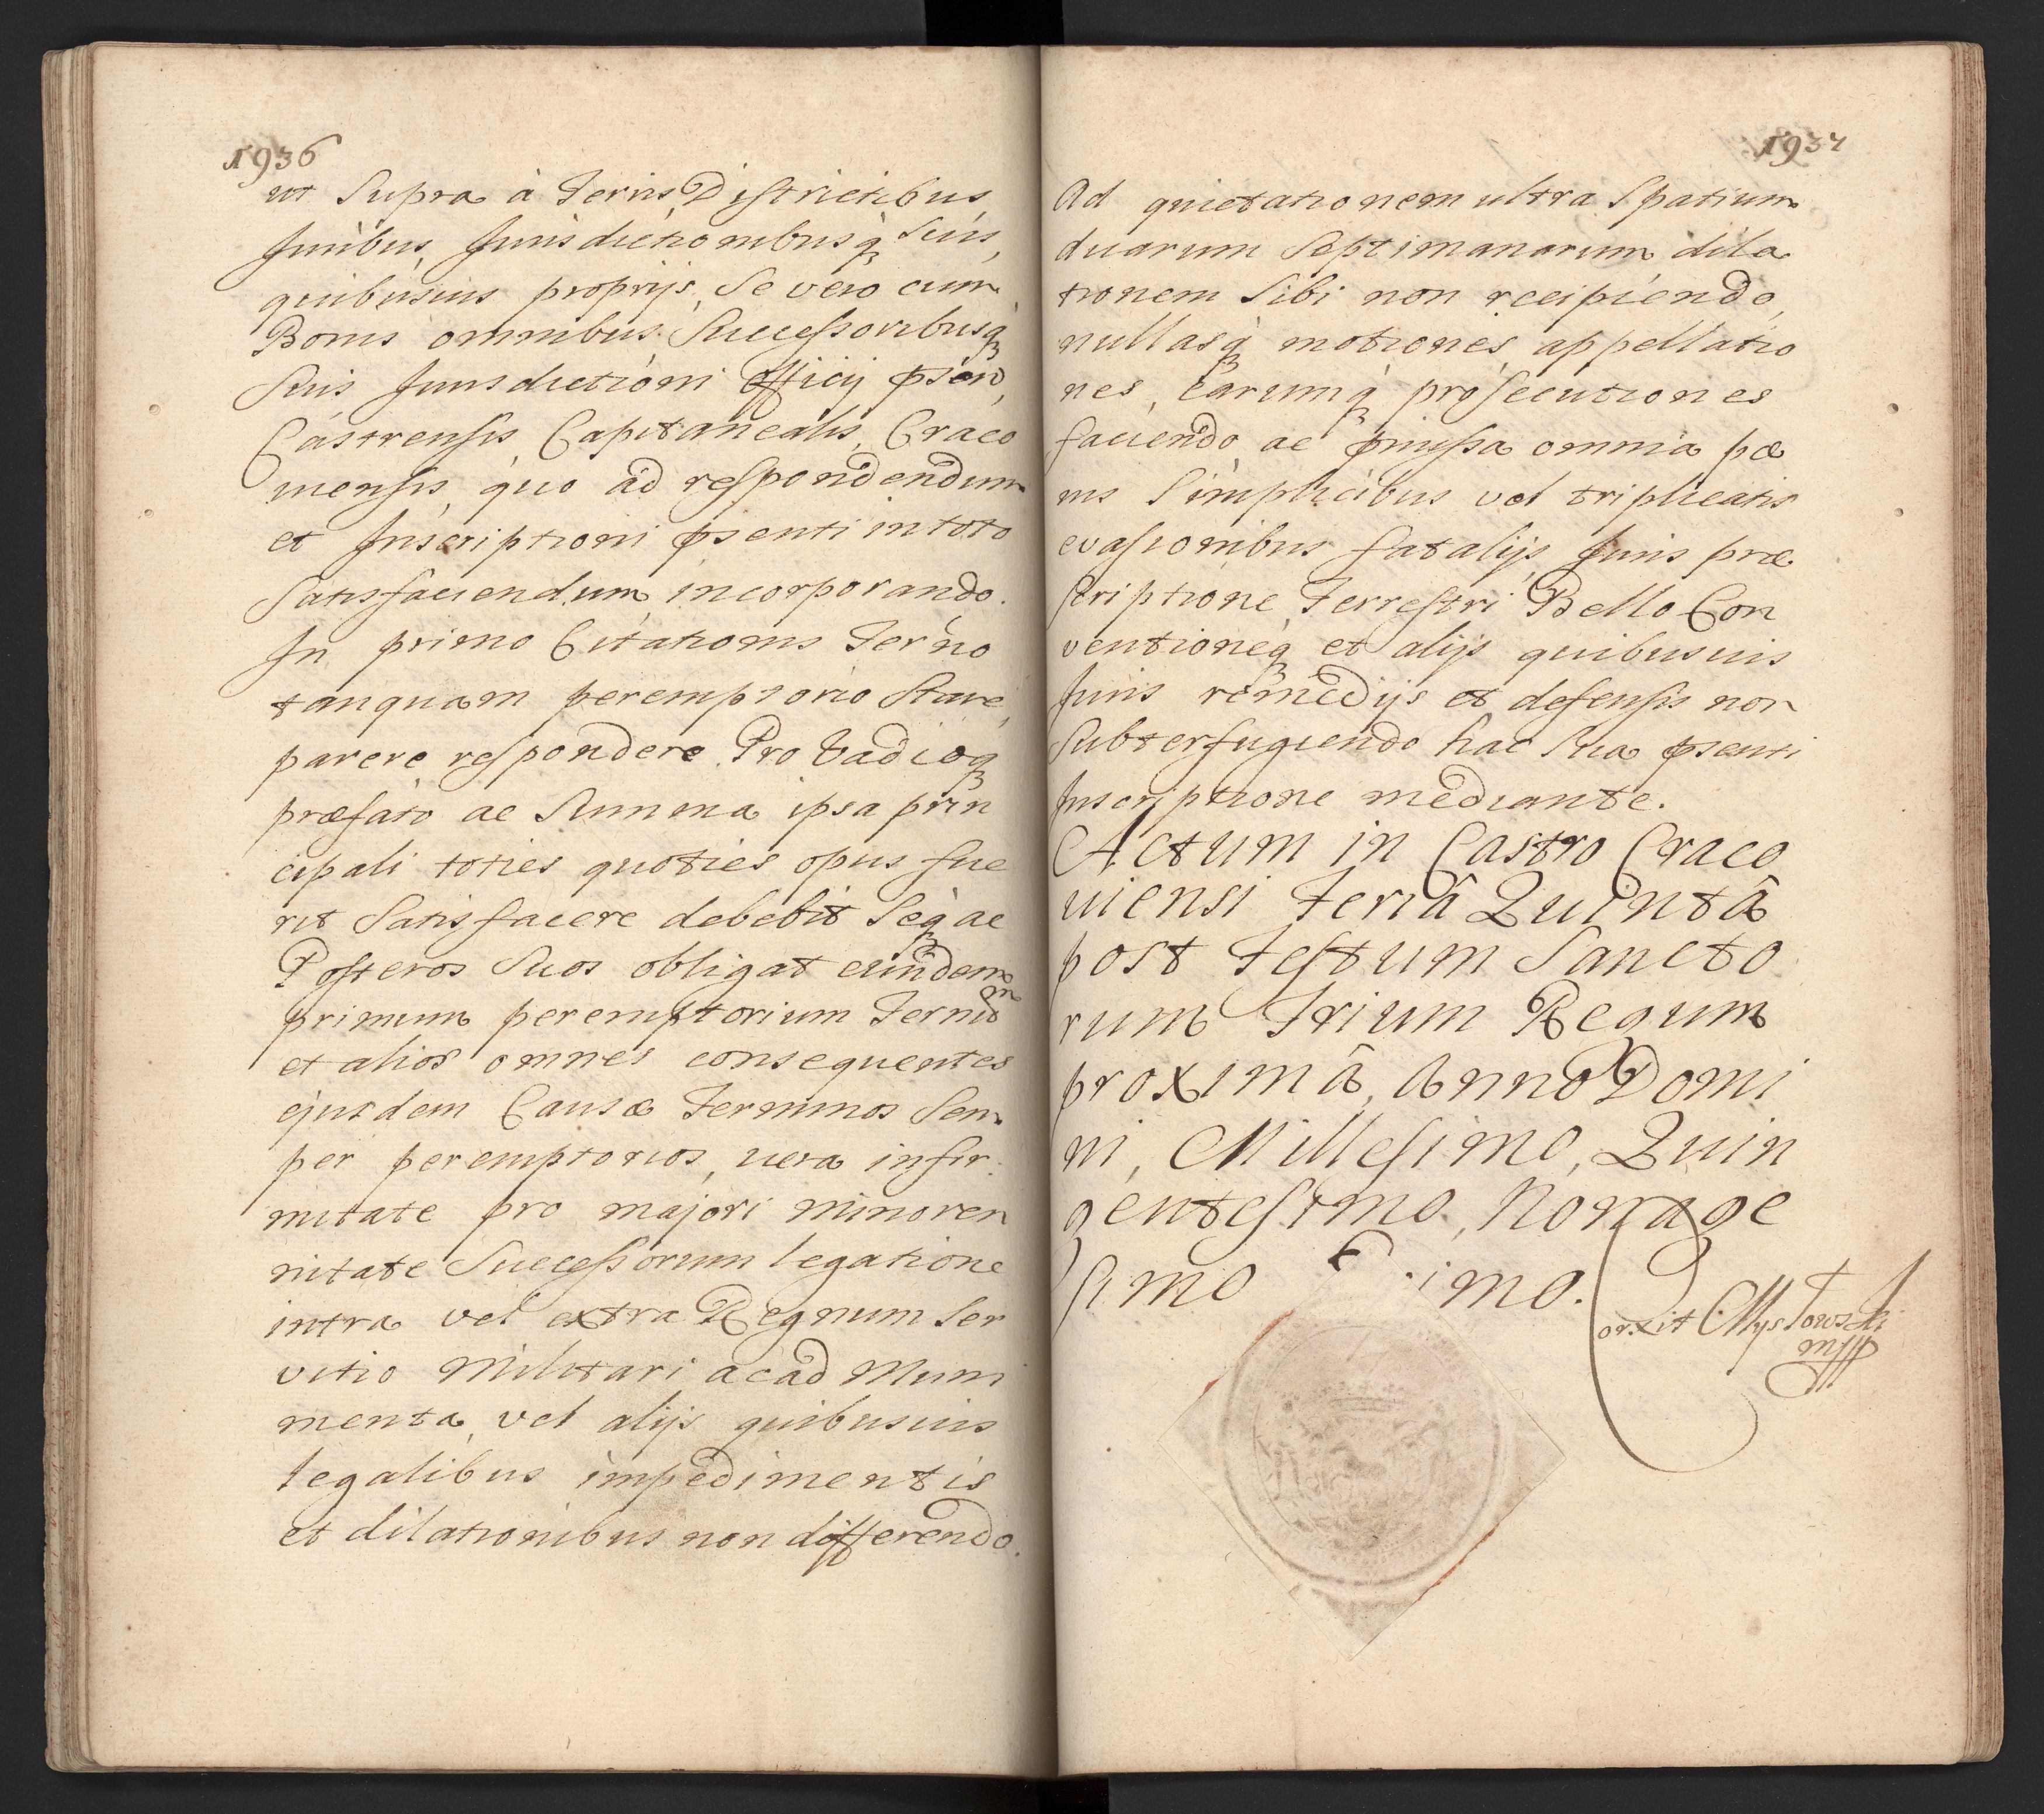 1936
ut Supra à Terris Districtibus,
Juribus, Jurisdictionibusq́ Suis,
quibusuis proprijs, Se vero cum
Bonis omnibus Successoribusq́
Suis Jurisdictioni Officij pśen,
Castrensis Capitanealis, Craco
uiensis, quo ad respondendum
et Inscriptioni psenti in toto
Satisfaciendum, incorporando.
In primo Citationis Terno
tanquam peremptorio Stare,
parere respondere. Pro Vadioq́
præfato ac Summa ipsa prin
cipali toties quoties opus fue
rit Satisfacere debebit Seq́ ac
Posteros Suos obligat eundem
primum peremptorium Termi
et alios omnes consequentes
ejusdem Causæ Terminos Sem
per peremptorios, uera infir
mitate pro majori minoren
nitate Successorum legatione
intra vel extra Regnum Ser
vitio Militari ac ad Muni
menta, vel alijs quibusuis
legalibus impedimentis
et dilationibus non differendo.
1937
Ad quietationem ultra Spatium
duarum Septimanarum dila
tionem Sibi non recipiendo,
nullasq́ motiones, appellatio
nes, earumq́ prosecutiones
faciendo, ac pmissa omnia pæ
nis Simplicibus vel triplicatis
evasionibus fatalijs Juris præ
scriptione Terrestri Bello Con
ventioneq́ et alijs quibusuis
Juris remedijs et defensis non
Subterfugiendo hac Sua psenti
Inscriptione mediante.
Actum in Castro Craco
uiensi Feriâ Quintâ
post Festum Sancto
rum Trium Regum
proximâ, Anno Domi
ni, Millesimo, Quin
gentesimo, Nonage
simo imo.